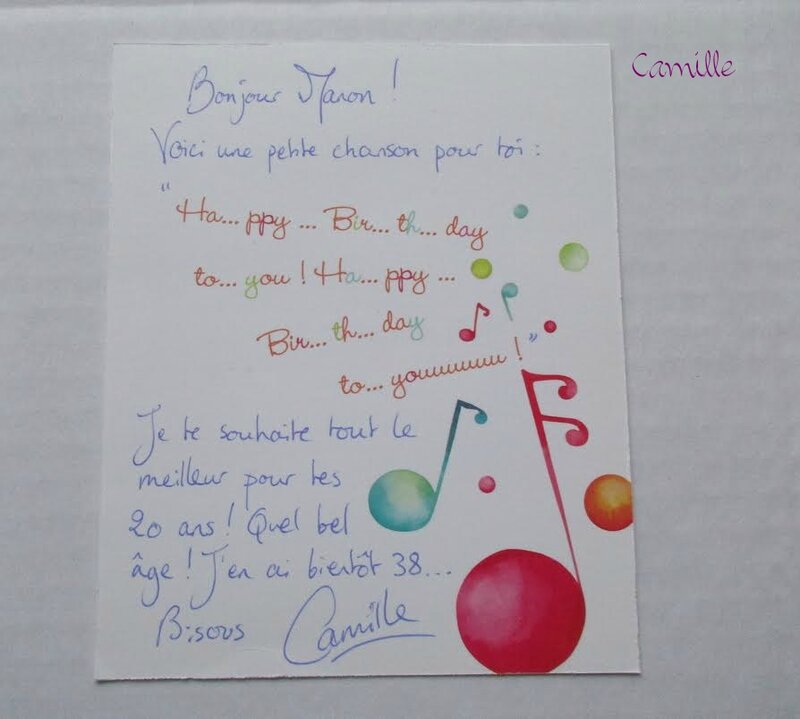 Camille
Bonjour Manon !
Voici une petite chanson pour toi :
"Ha... ppy ... Bir... th... day
to... you ! Ha... ppy ...
Bir... th... day
to... youuuuuuu !"
Je te souhaite tout le
meilleur pour tes
20 ans ! Quel bel
âge ! J'en ai bientôt 38...
Bisous Camille